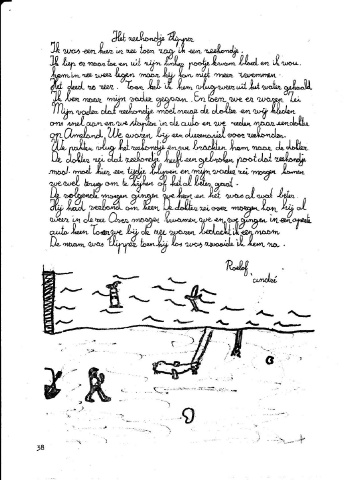 Het zeehondje Flipper
Ik was een keer in zee toen zag ik een zeehondje.
Ik liep er naar toe en uit zijn linker pootje kwam bloed en ik wou
hem in zee weer legen maar hij kan niet meer zwemmen.
Het deed zo zeer. Toen heb ik hem vlug weer uit het water gehaald
Ik ben naar mijn vader gegaan. En toen we er waren zei
Mijn vader dat zeehondje moet naar de dokter en wij kleden
ons snel aan en we stapten in de auto en we reden naar een dokter
op Ameland. We waren bij een dierenarts voor zeehonden.
We pakten vlug het zeehondje en we brachten hem naar de dokter.
De dokter zei dat zeehondje heeft een gebroken poot dat zeehondje
moet hier een tijdje blijven en mijn vader zei morgen komen
we wel terug om te kijken of het al beter gaat.
De volgende morgen gingen we heen en het was al wat beter
Hij had verband om heen de dokter zei over morgen kan hij al
weer in de zee Over morgen kwamen we en we gingen in een aparte
auto heen Toen we bij de zee waren bedacht ik een naam
De naam was Flipper toen hij los was zwaaide ik hem na.
Roelof
38